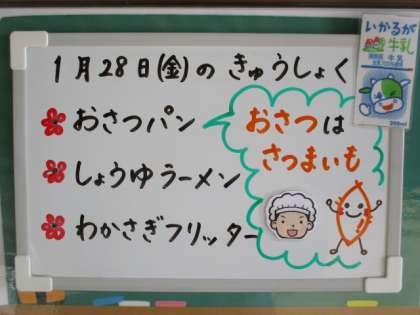 1月28日(金)の きゅうしょく
おさつパン
しょうゆラーメン
わかさぎフリッター
おさつは
さつまいも
いかるが
牛乳
200ml